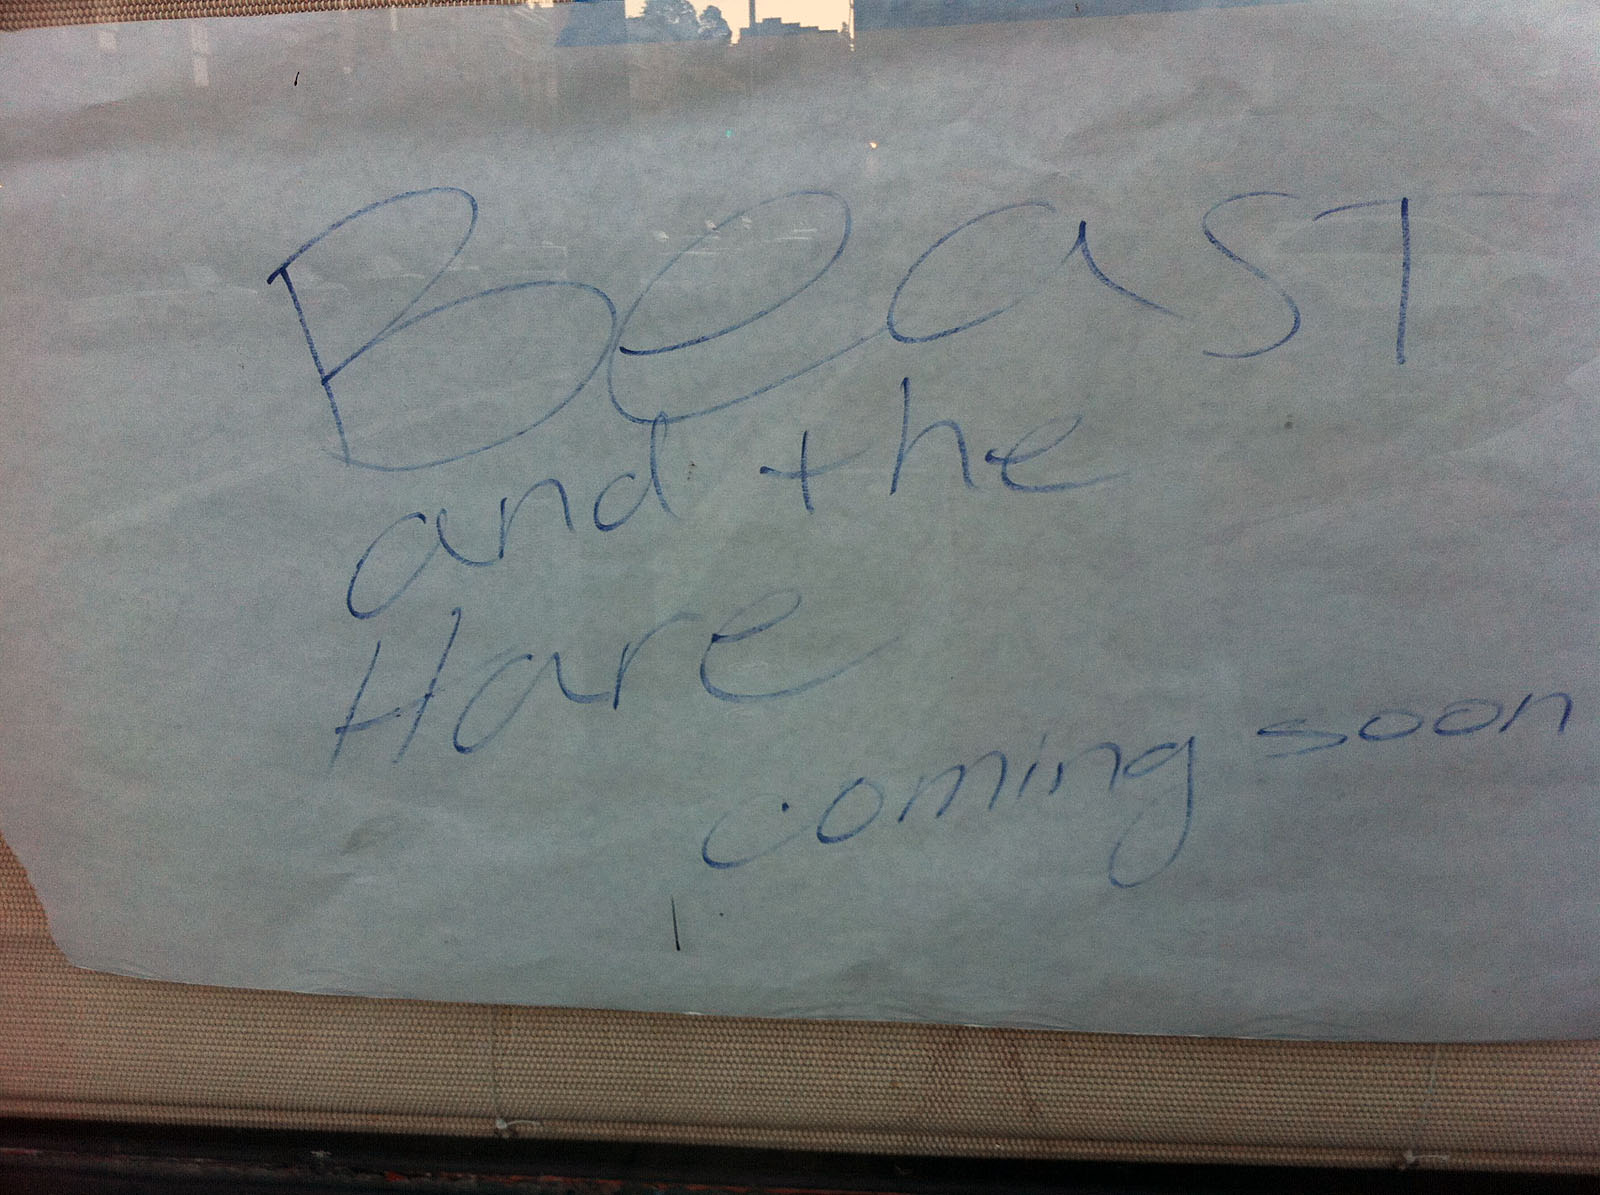 Beast
and the
Hare
coming soon